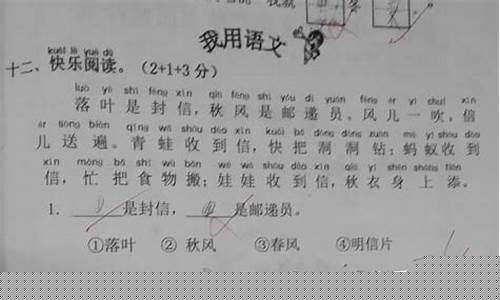 我用语文
kuài lè yuè dú
十二、快乐阅读。（2+1+3 分）
luò yè shì fēng xìn qiū fēng shì yóu dì yuán fēng ér yì chuī xìn
落 叶 是 封 信，秋 风 是 邮 递 员。风 儿 一 吹，信
ér sòng biàn qīng wā shōu dào xìn kuài bǎ dòng dòng zuān mǎ yǐ shōu dào
儿 送 遍。青 蛙 收 到 信，快 把 洞 洞 钻；蚂 蚁 收 到
xìn máng bǎ shí wù bān wá wa shōu dào xìn qiū yī shēn shang tiān
信，忙 把 食 物 搬；娃 娃 收 到 信，秋 衣 身 上 添。
1. 是封信， 是邮递员。
①落叶 ② 秋风 ③春风 ④明信片